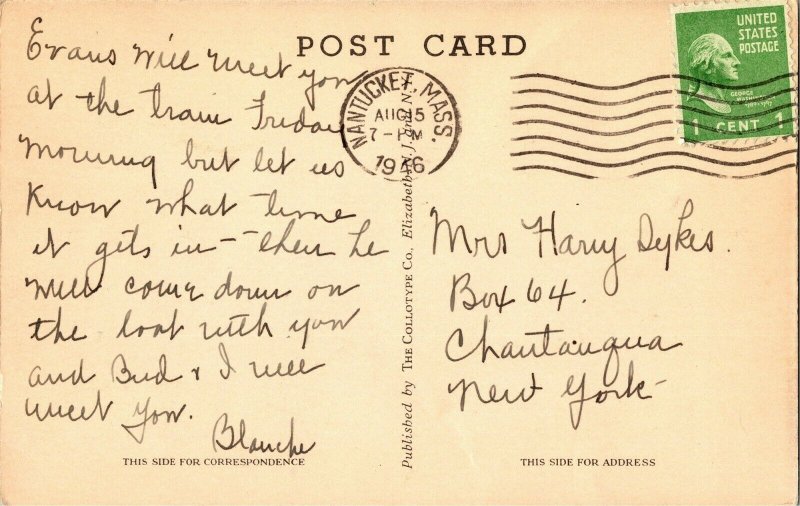 POST CARD
UNITED
STATES
POSTAGE
1 CENT 1
NANTUCKET, MASS.
AUG 15
7-PM
1946
Evans will meet you
at the train Friday
morning but let us
know what time
it gets in - then he
will come down on
the boat with you
and Bud + I will
meet you.
Blanche
Mrs Harry Dykes.
Box 64.
Chautauqua
New York-
Published by THE COLLOTYPE CO., Elizabeth, N. J. and N.
THIS SIDE FOR CORRESPONDENCE
THIS SIDE FOR ADDRESS